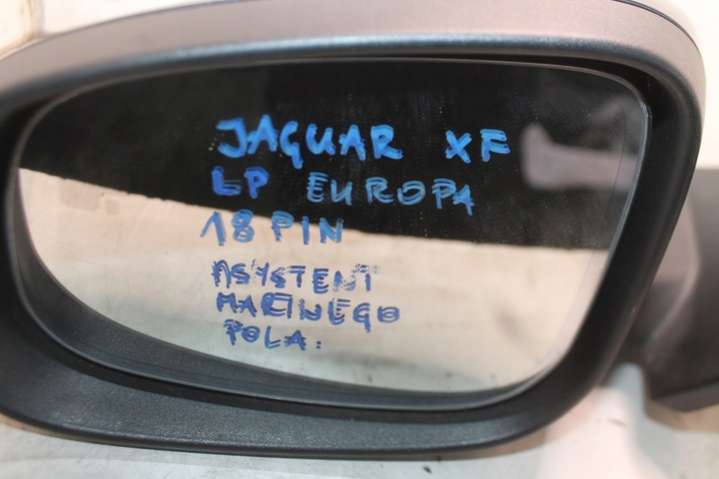 JAGUAR XF
LP EUROPA
18 PIN
ASYSTENT
MARTWEGO
POLA.